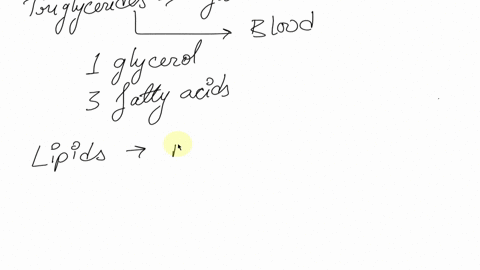 Triglycerides →
→ Blood
1 glycerol
3 fatty acids
Lipids →